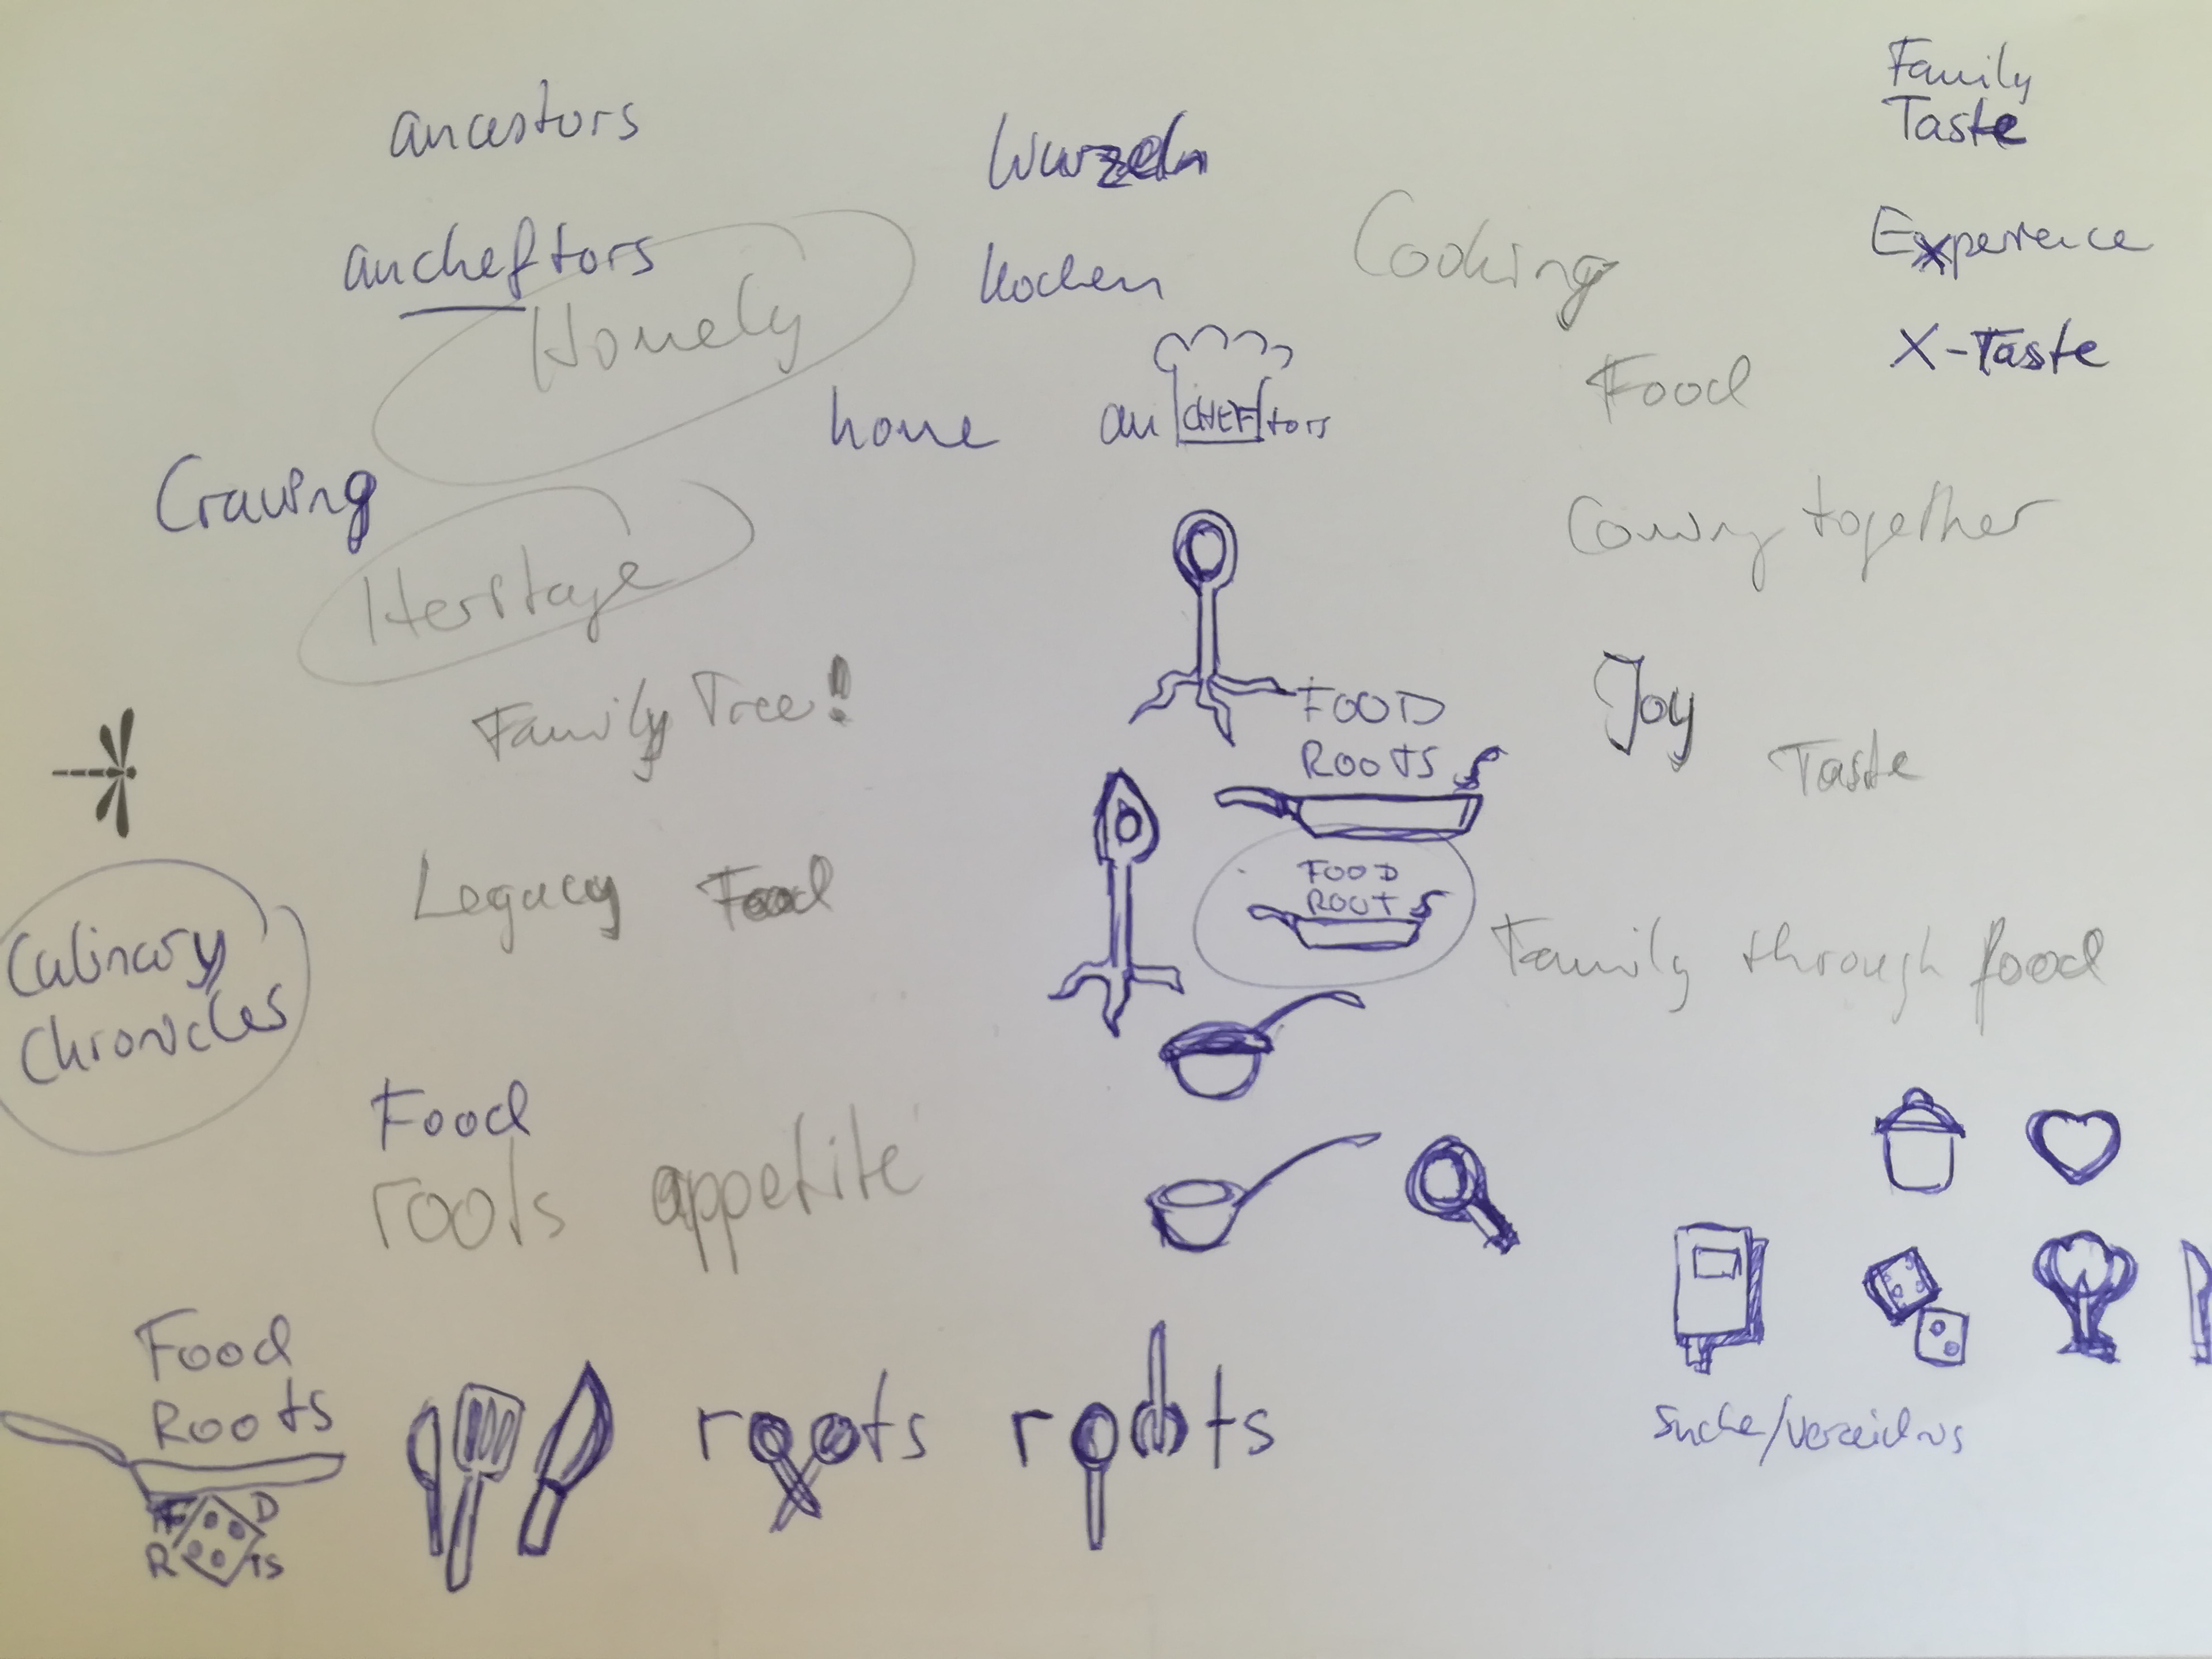 ancestors
ancheftors
Homely
Craving
Heritage
Family Tree!
Legacy Food
Culinary
Chronicles
Food
roots appetite
Food
Roots
F D
R TS
roots
roots
Wurzeln
kochen
home
an CHEF tors
FOOD
ROOTS
FOOD
ROOT
Cooking
Food
Coming together
Joy
Taste
Family through food
Family
Taste
Experience
X-Taste
Suche/Verzeichnis